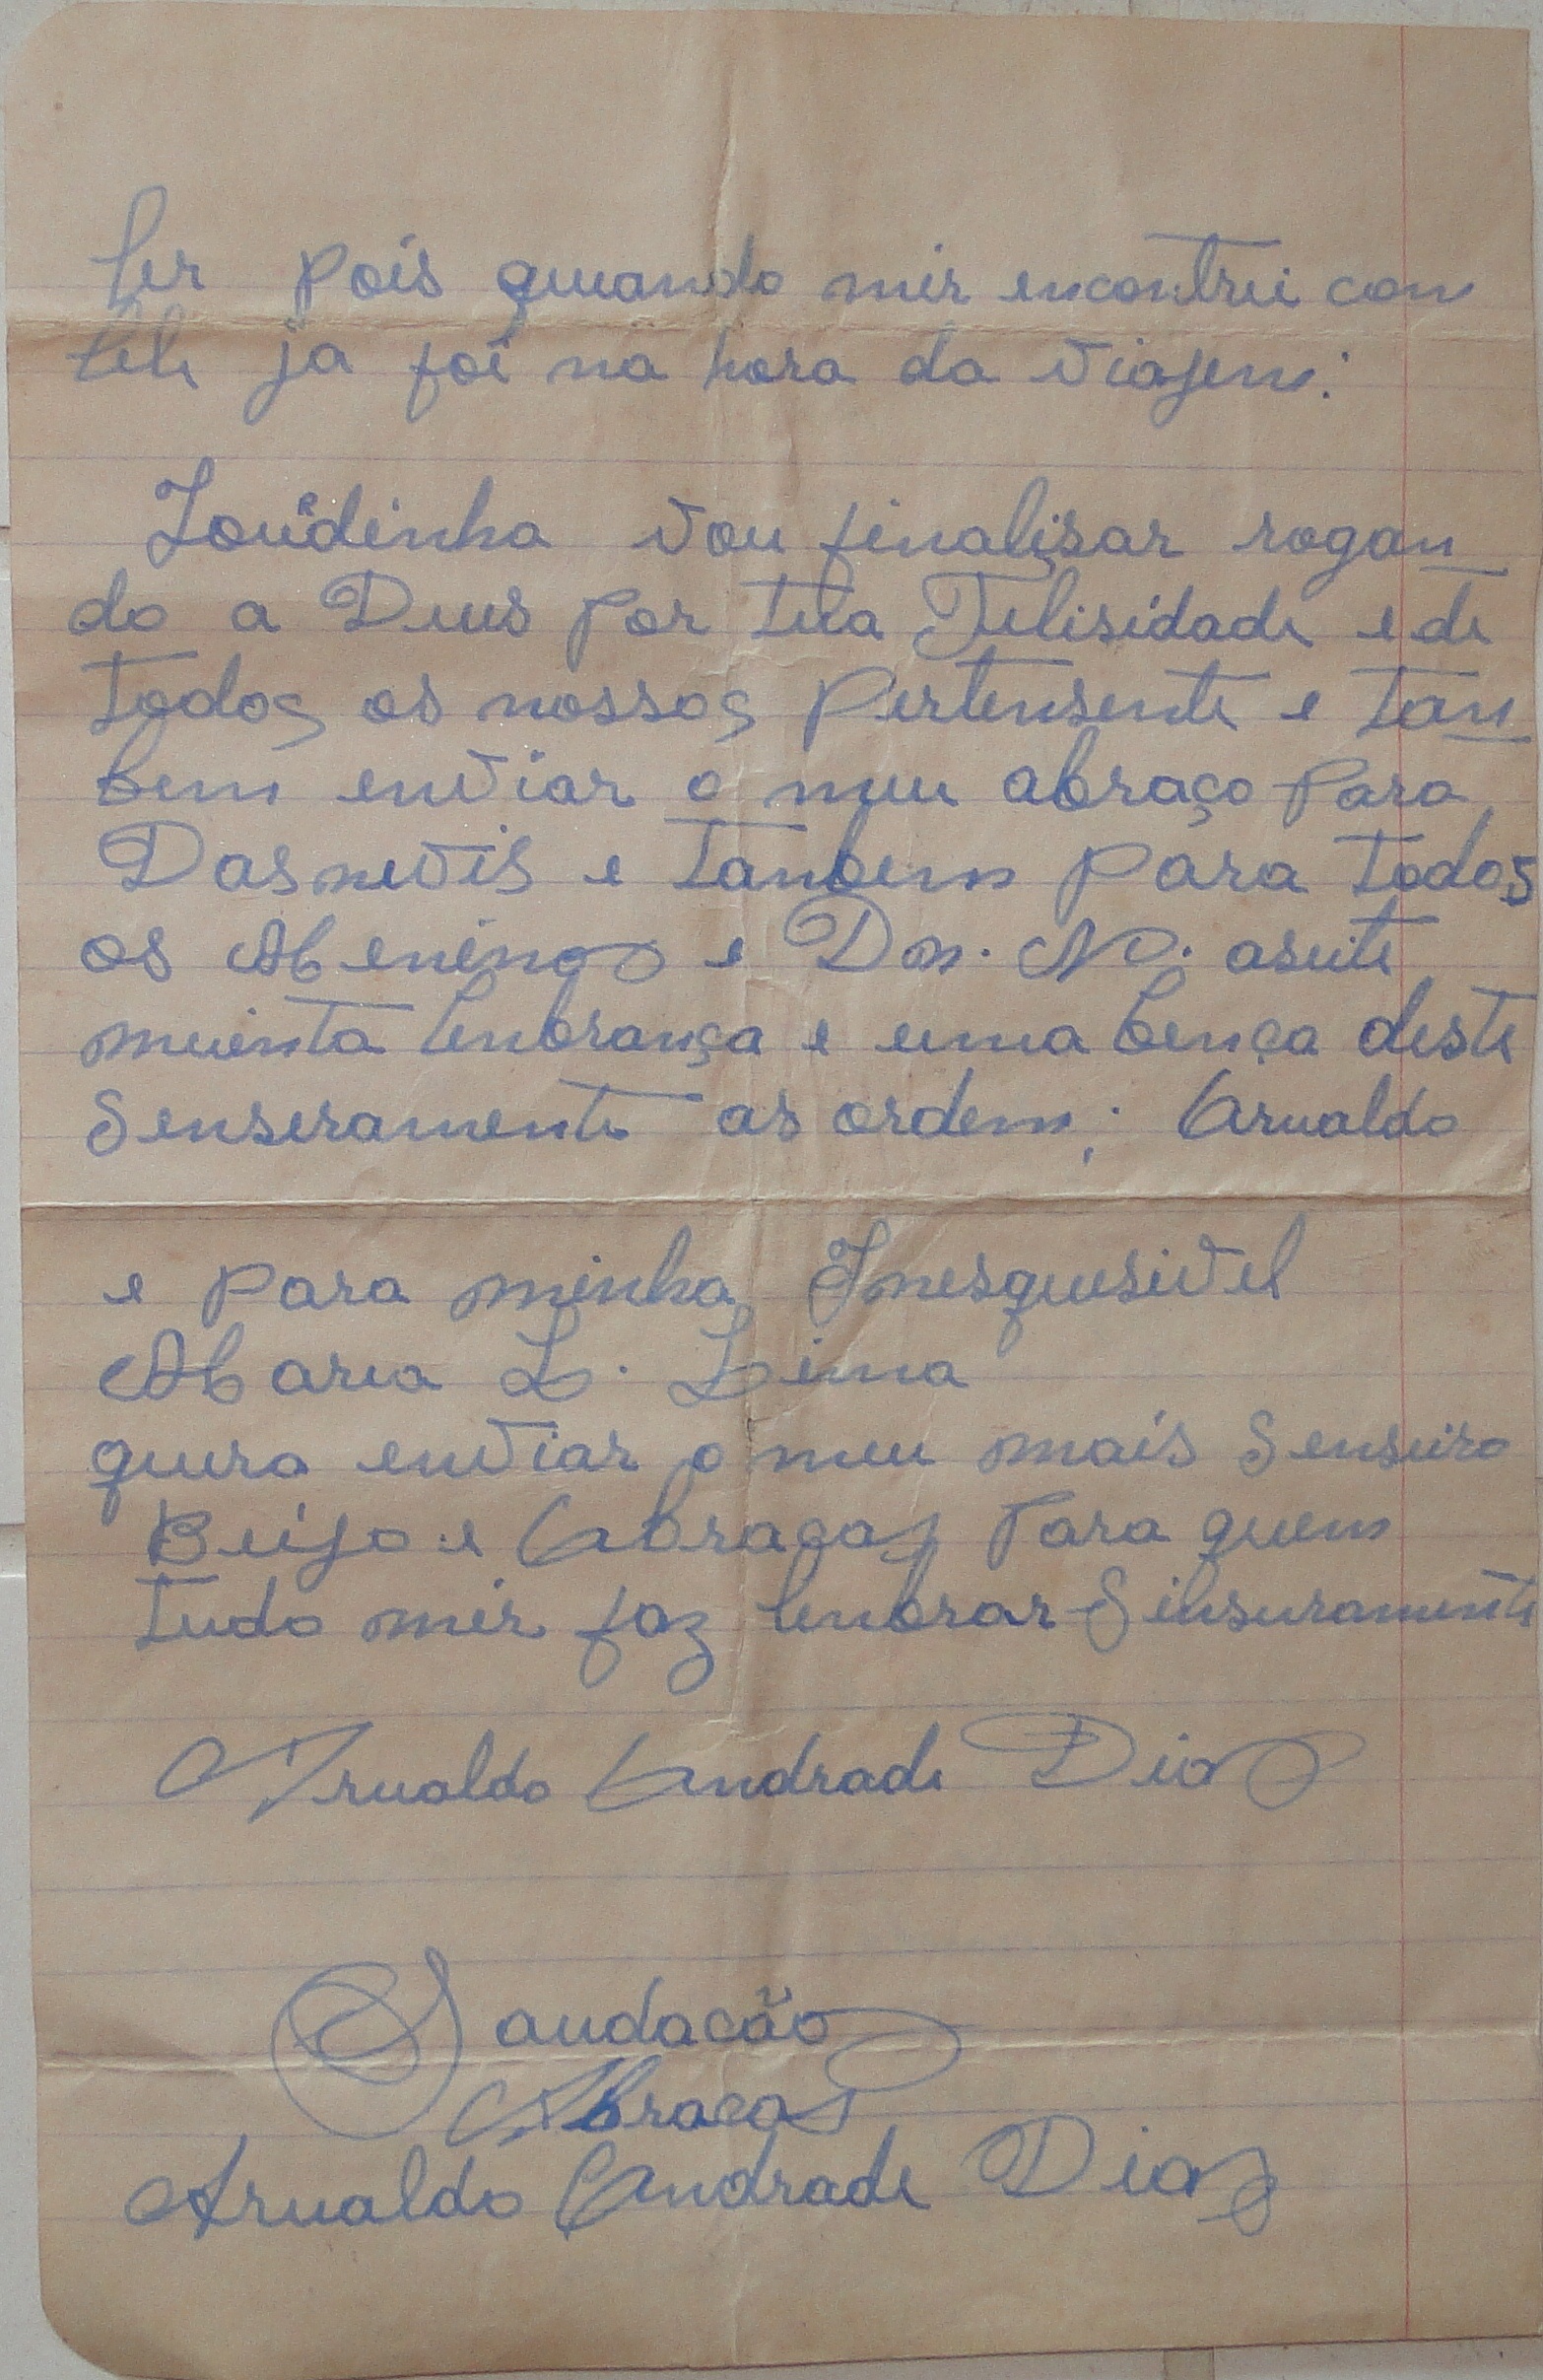 ler pois quando mir encontrei com
tele ja foi na hora da viajem.
Loudinha vou finalisar rogan
do a Deus por tua Felisidade e de
todos os nossos Pertensente e tan
bem enviar o meu abraço para
Dasnevis e tanbem para todos
os Meninos e Dn. N. aseite
muinta lenbrança e uma bença deste
Senseramente as ordem; Arnaldo
e para minha Inesquesivel
Maria L. Lima
quero enviar o meu mais Senseiro
Beijo e Abraços Para quem
tudo mir faz lenbrar Sinseramente
Arnaldo Andrade Dias
Saudacão
Abraços
Arnaldo Andrade Dias